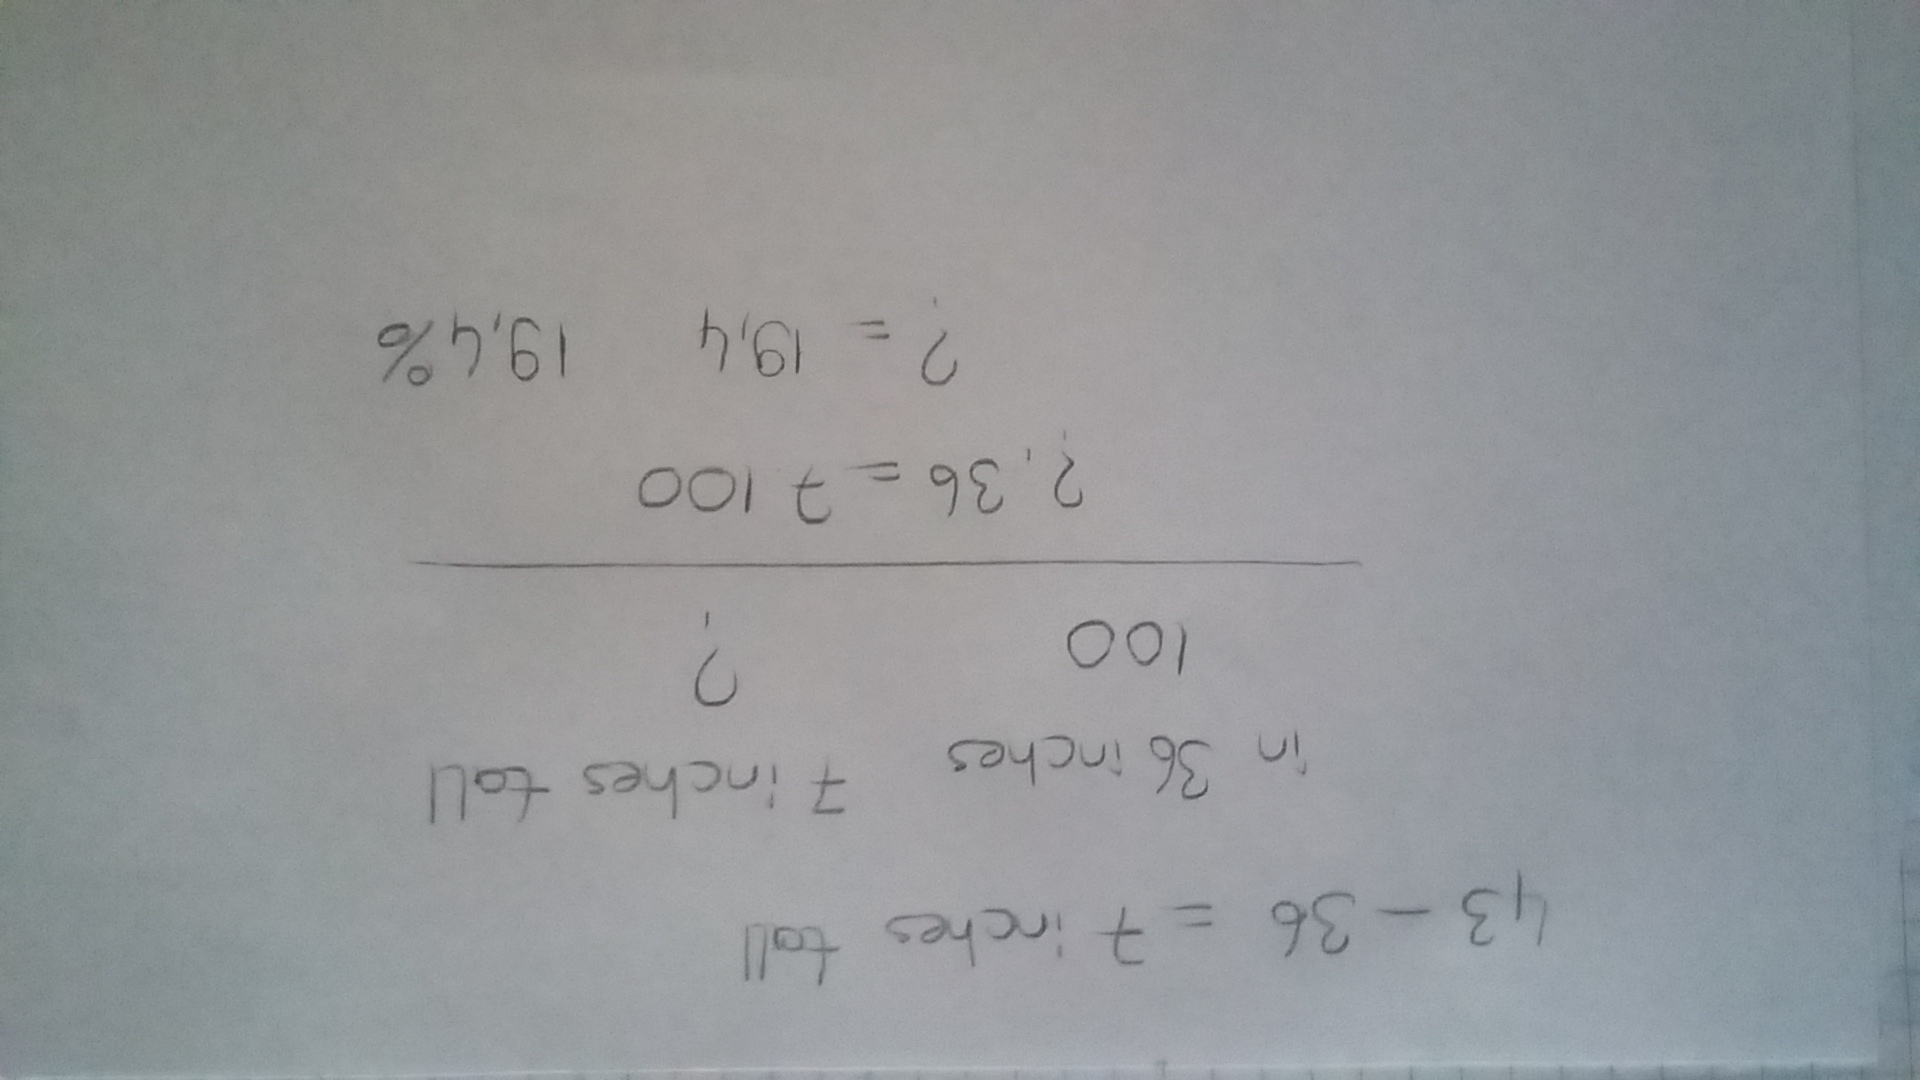 43 - 36 = 7 inches tall
in 36 inches 7 inches tall
100 ?
?. 36 = 7 100
? = 19,4 19,4%